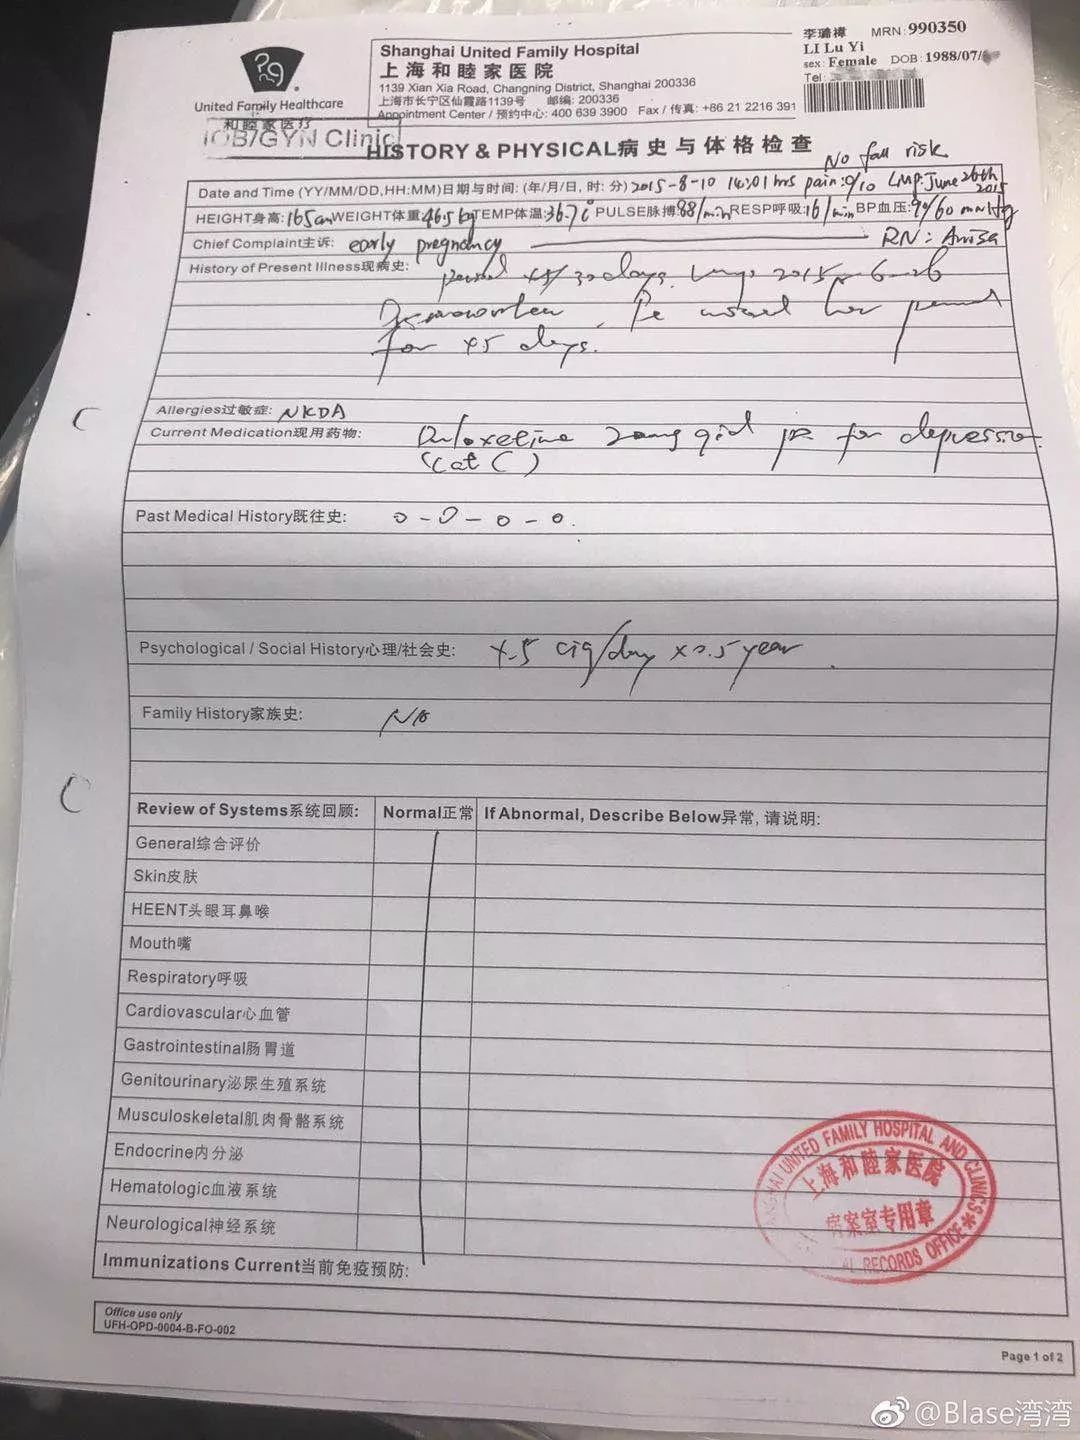 李璐禕 MRN: 990350
LI Lu Yi
sex: Female DOB: 1988/07/
Tel:
United Family Healthcare
和睦家医疗
OB/GYN Clinic
Shanghai United Family Hospital
上海和睦家医院
1139 Xian Xia Road, Changning District, Shanghai 200336
上海市长宁区仙霞路1139号 邮编: 200336
Appointment Center / 预约中心: 400 639 3900 Fax / 传真: +86 21 2216 391
HISTORY & PHYSICAL病史与体格检查
No fall risk
Date and Time (YY/MM/DD,HH:MM)日期与时间: (年/月/日, 时: 分) 2015-8-10 14:01 hrs pain: 0/10 LMP: June 26th 2015
HEIGHT身高: 165cm WEIGHT体重: 46.5kg TEMP体温: 36.7℃ PULSE脉搏: 88/min RESP呼吸: 16/min BP血压: 99/60 mmHg
Chief Complaint主诉: early pregnancy RN: Anisa
History of Present Illness现病史: period 30 days. 2015-6-26
her period
for 45 days.
Allergies过敏症: NKDA
Current Medication现用药物: Duloxetine 20mg for depression
(Cat C)
Past Medical History既往史: 0-0-0-0.
Psychological / Social History心理/社会史: cig/day x0.5 year
Family History家族史:
Review of Systems系统回顾: Normal正常 If Abnormal, Describe Below异常, 请说明:
General综合评价
Skin皮肤
HEENT头眼耳鼻喉
Mouth嘴
Respiratory呼吸
Cardiovascular心血管
Gastrointestinal肠胃道
Genitourinary泌尿生殖系统
Musculoskeletal肌肉骨骼系统
Endocrine内分泌
Hematologic血液系统
Neurological神经系统
Immunizations Current当前免疫预防:
SHANGHAI UNITED FAMILY HOSPITAL AND CLINICS
上海和睦家医院
病案室专用章
RECORDS OFFICE
Office use only
UFH-OPD-0004-B-FO-002
Page 1 of 2
@Blase湾湾